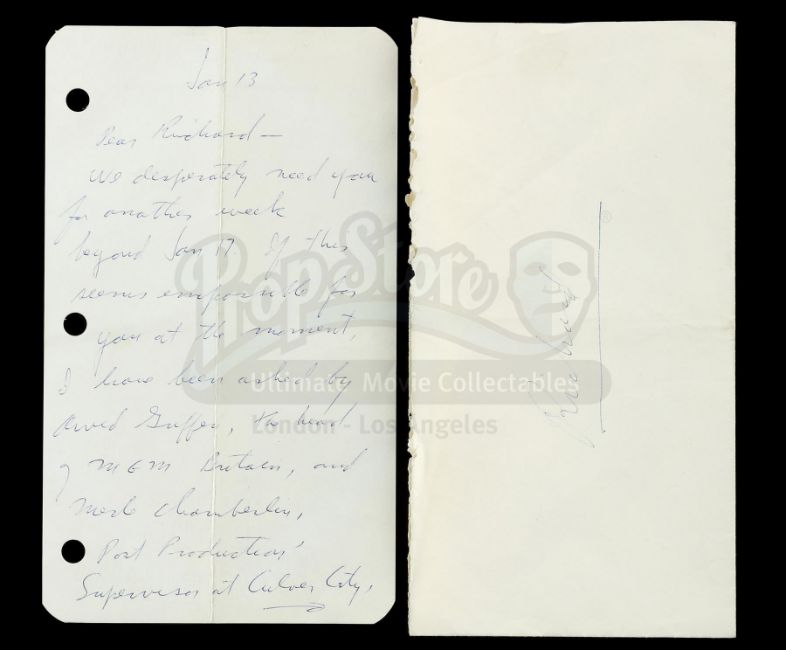 Jan 13
Dear Richard —
We desperately need you
for another week
beyond Jan 17. If this
seems impossible for
you at the moment,
I have been asked by
Arvid Griffen, the head
of MGM Britain, and
Merle Chamberlin,
Post Production
Supervisor at Culver City,
PropStore
Ultimate Movie Collectables
London - Los Angeles
®